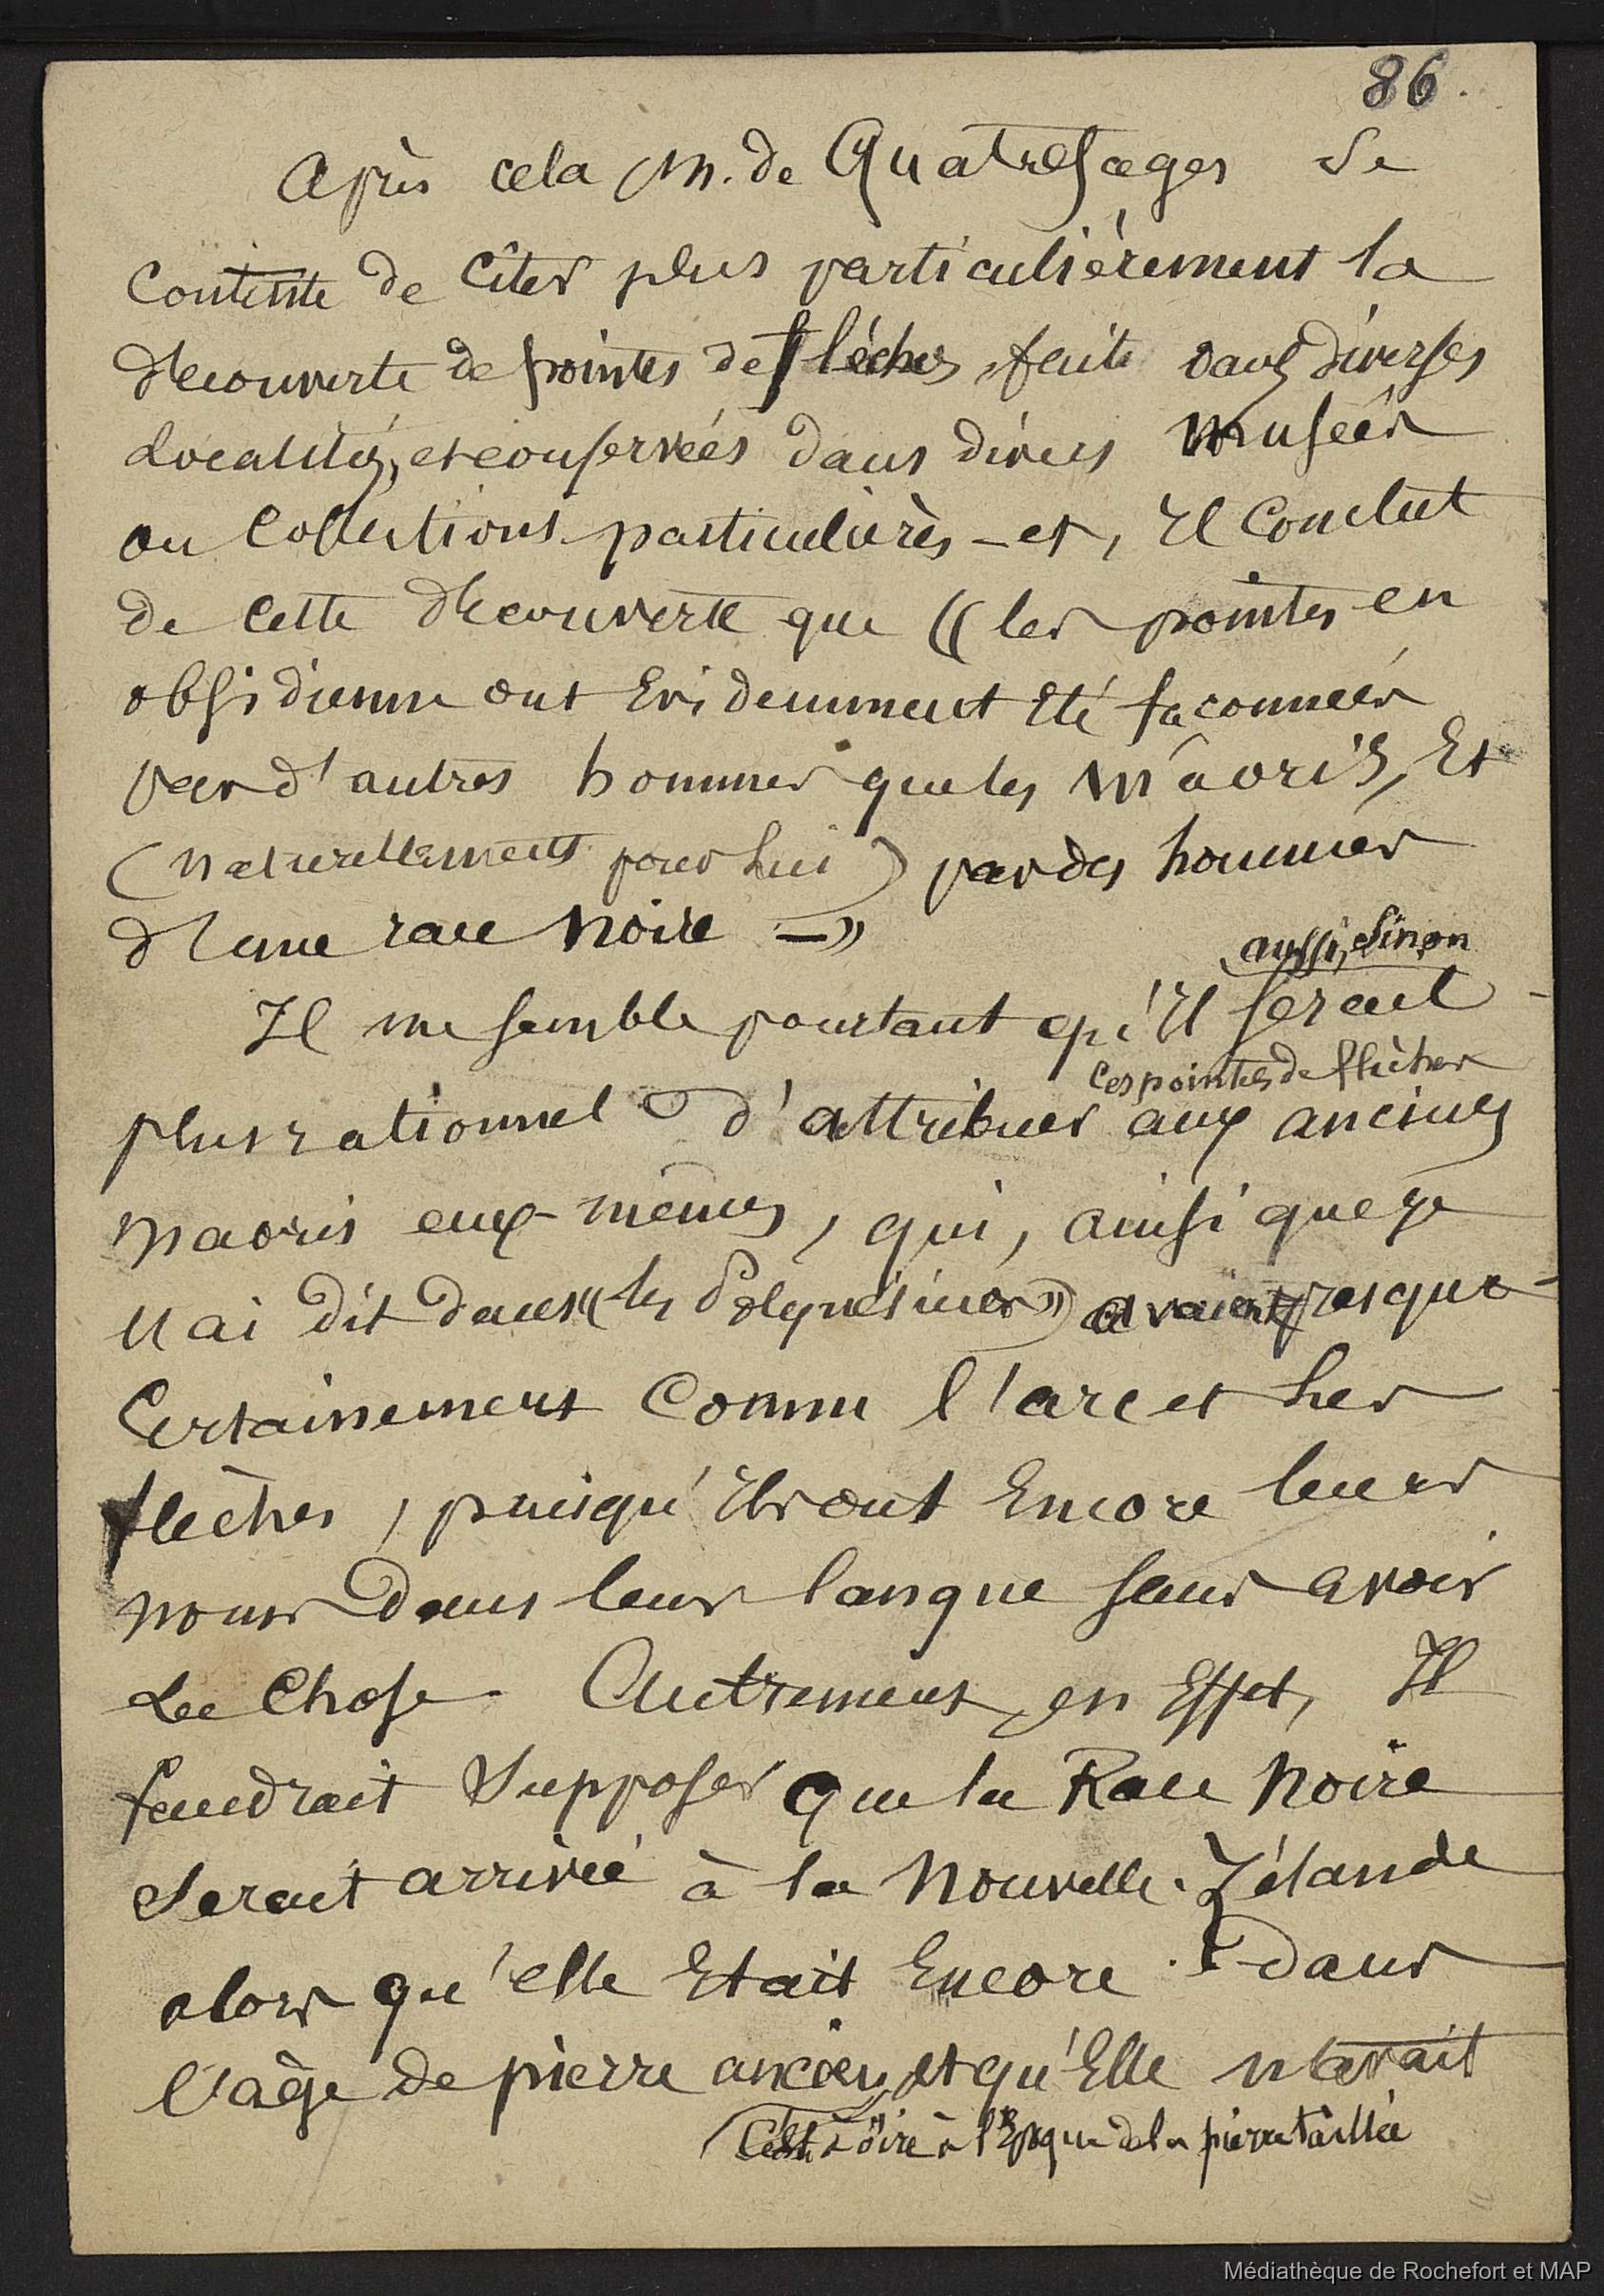 86.
Après cela M. de Quatrefages se
contente de citer plus particulièrement la
découverte de pointes de flèches, faite dans diverses
localités, et conservées dans divers musées
ou collections particulières - et, il conclut
de cette découverte que « les pointes en
obsidienne ont évidemment été façonnées
par d'autres hommes que les Maoris, et
(naturellement pour lui) par des hommes
d'une race noire - »
aussi, sinon
Il me semble pourtant qu'il serait
ces pointes de flèches
plus rationnel d'attribuer aux anciens
Maoris eux-mêmes, qui, ainsi que je
l'ai dit dans « les Polynésiens » avaient presque
certainement connu l'arc et les
flèches, puisqu'ils ont encore leurs
noms dans leur langue sans avoir
la chose. Autrement, en effet, il
faudrait supposer que la Race noire
serait arrivée à la Nouvelle-Zélande
alors qu'elle était encore dans
l'âge de pierre ancien, et qu'elle n'avait
c'est à dire à l'Epoque de la pierre taillée
Médiathèque de Rochefort et MAP